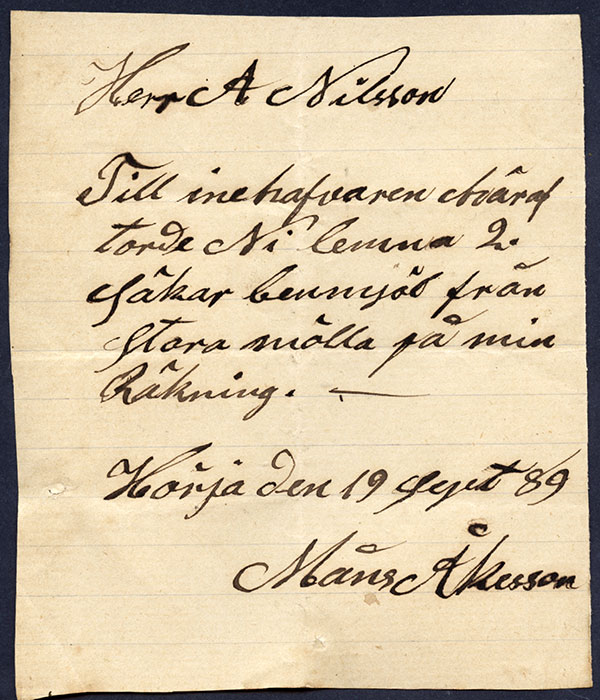 Herr A Nilsson
Till inehafvaren häraf
torde Ni lemna 2.
säkar benmjöl från
stora mölla på min
Räkning. —
Hörja den 19 Sept 89
Måns Åkesson